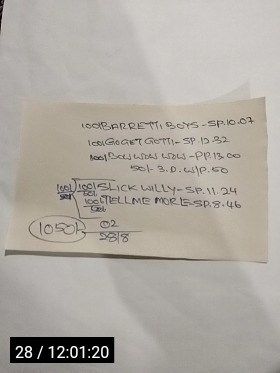 100/BARRETTI BOYS-SP.10.07
100/GOGET GOTTI-SP.12.32
100/BOW WOW WOW-PP.13.00
50/- 3.D.W/P.50
100/ 100/SLICK WILLY-SP.11.24
50/ 50/
100/TELL ME MORE-SP.8.46
50/
1050/- 02
28/8
28 / 12:01:20